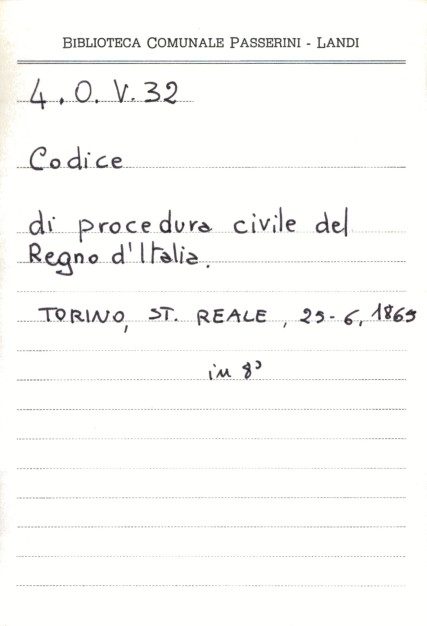 BIBLIOTECA COMUNALE PASSERINI - LANDI
4.O.V.32
Codice
di procedura civile del
Regno d'Italia.
TORINO, ST. REALE, 25-6, 1865
in 8°